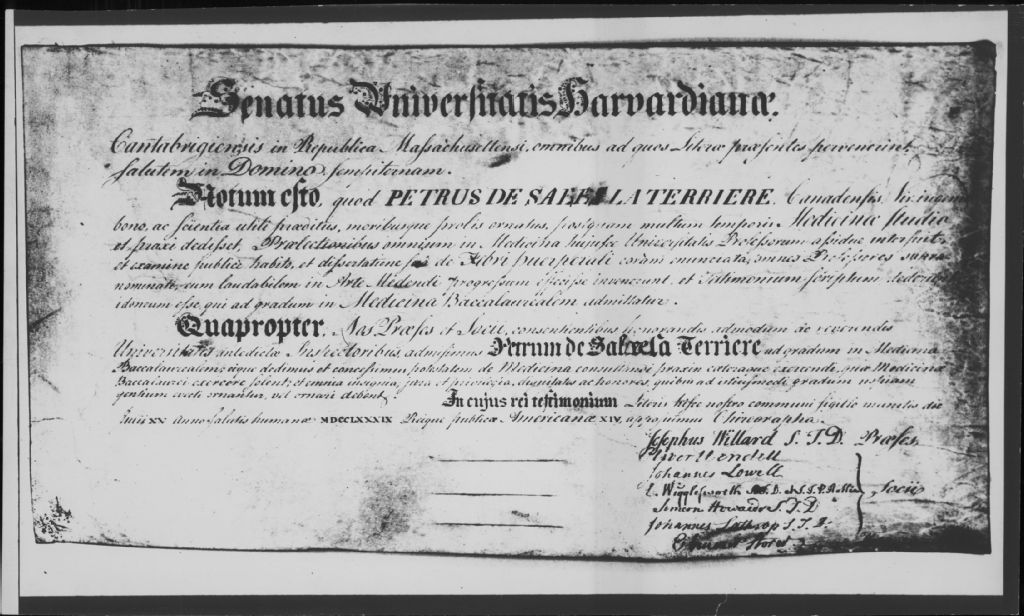 Senatus Universitatis Harvardianæ,
Cantabrigiensis in Republica Massachusettensi, omnibus ad quos Literæ præsentes pervenerint
Salutem in Domino sempiternam.
Notum esto, quod PETRUS DE SALES LATERRIERE, Canadensis, Vir ingenio
bono, ac scientia utili præditus, moribusque probis ornatus, postquam multum temporis Medicinæ studio
et praxi dedisset, Prælectionibus omnium in Medicina hujusce Universitatis Professorum assidue interfuit,
et examine publice habito, et dissertatione de Febri Puerperali coram enunciata, omnes Professores supra
nominati, eum laudabilem in Arte Medendi progressum effecisse invenerunt, et Testimonium scriptum
idoneum esse, qui ad gradum in Medicina Baccalaurealem admittatur.
Quapropter, Nos Præses et Socii, consentientibus honorandis admodum ac reverendis
Universitatis antedictæ Inspectoribus, admisimus Petrum de Sales La Terriere ad gradum in Medicina
Baccalaurealem, eique dedimus et concessimus potestatem de Medicina consultandi, praxin exercendi, quæ Medicinæ
Baccalaurei exercere solent; et omnia insignia, jura et privilegia, dignitates ac honores, quibus ad istiusmodi gradum
gentium evecti ornantur, vel ornari debent. In cujus rei testimonium Literis hisce nostro communi sigillo munitis die
Julii XV Anno Salutis humanæ MDCCLXXXIX Reique publicæ Americanæ XIV, Chirographa.
Josephus Willard S. T. D. Præses
Oliver Wendell
Johannes Lowell
E. Wigglesworth S. T. D. et S. T. P. Hollis Socii
Simeon Howard S. T. D
Johannes Lathrop S. T. D.